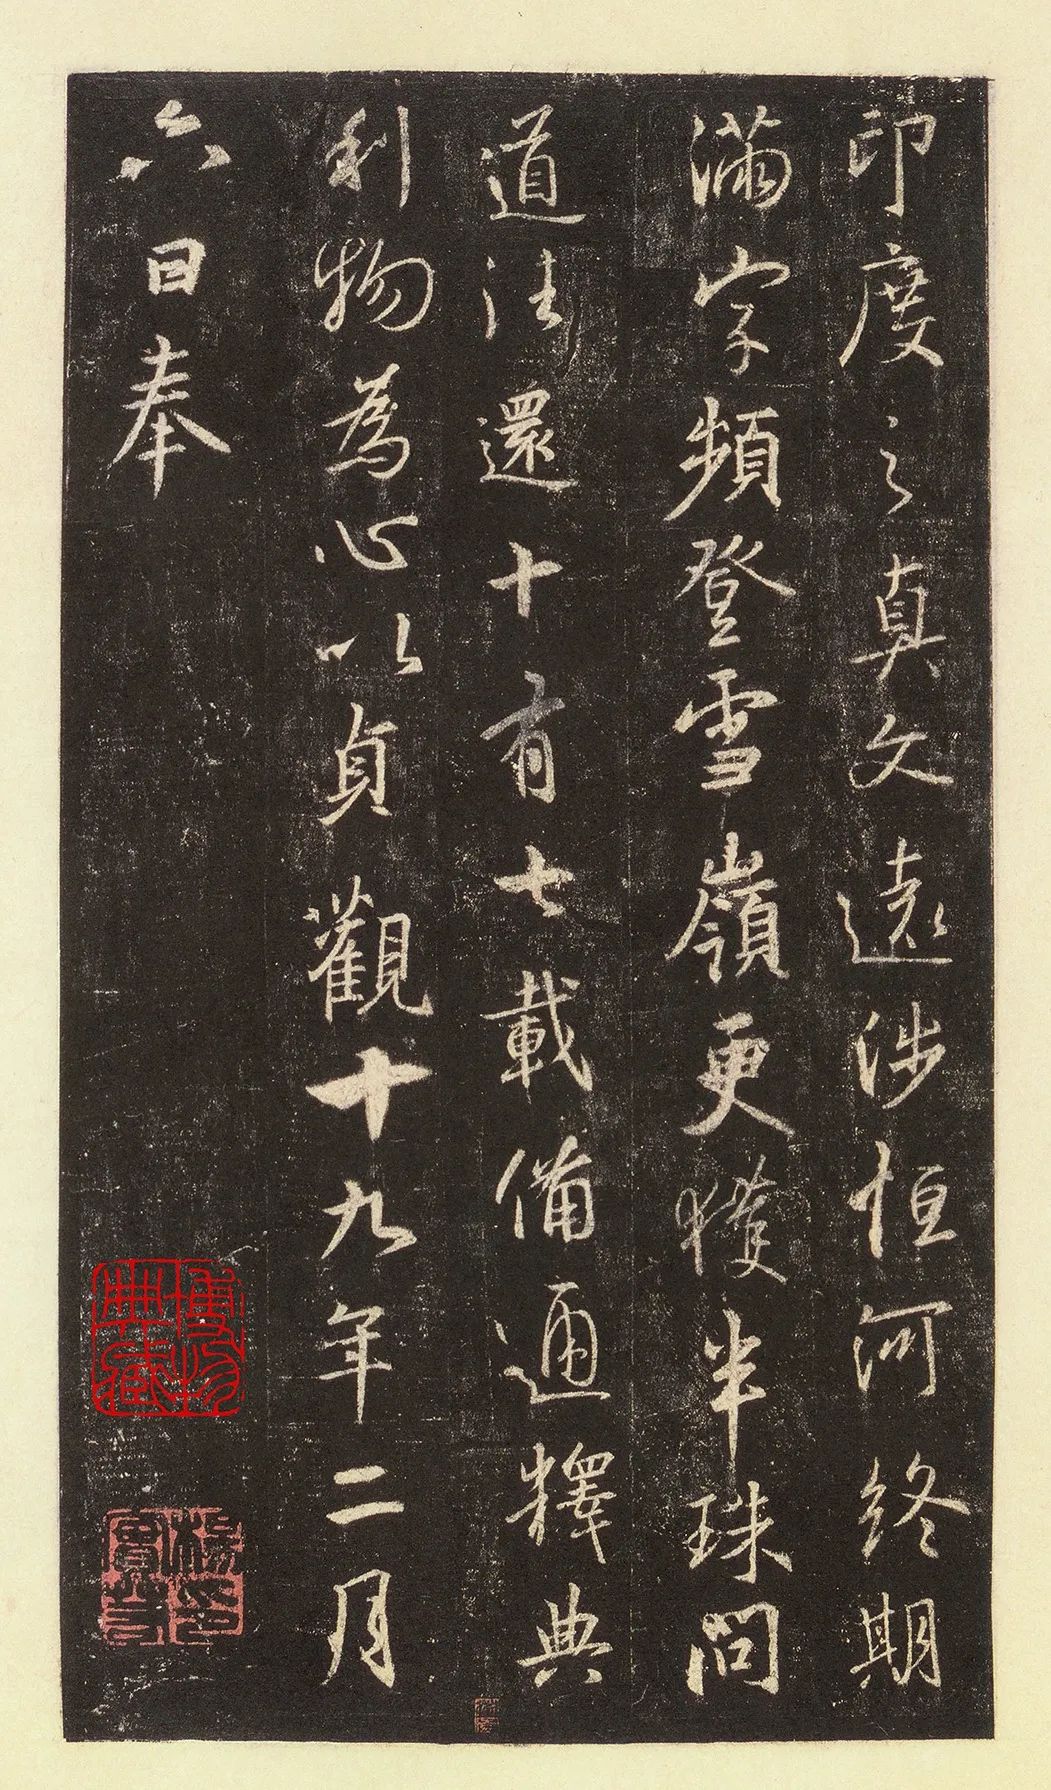 印度之真文遠涉恒河終期
滿字頻登雪嶺更獲半珠問
道往還十有七載備通釋典
利物為心以貞觀十九年二月
六日奉
博物
典藏